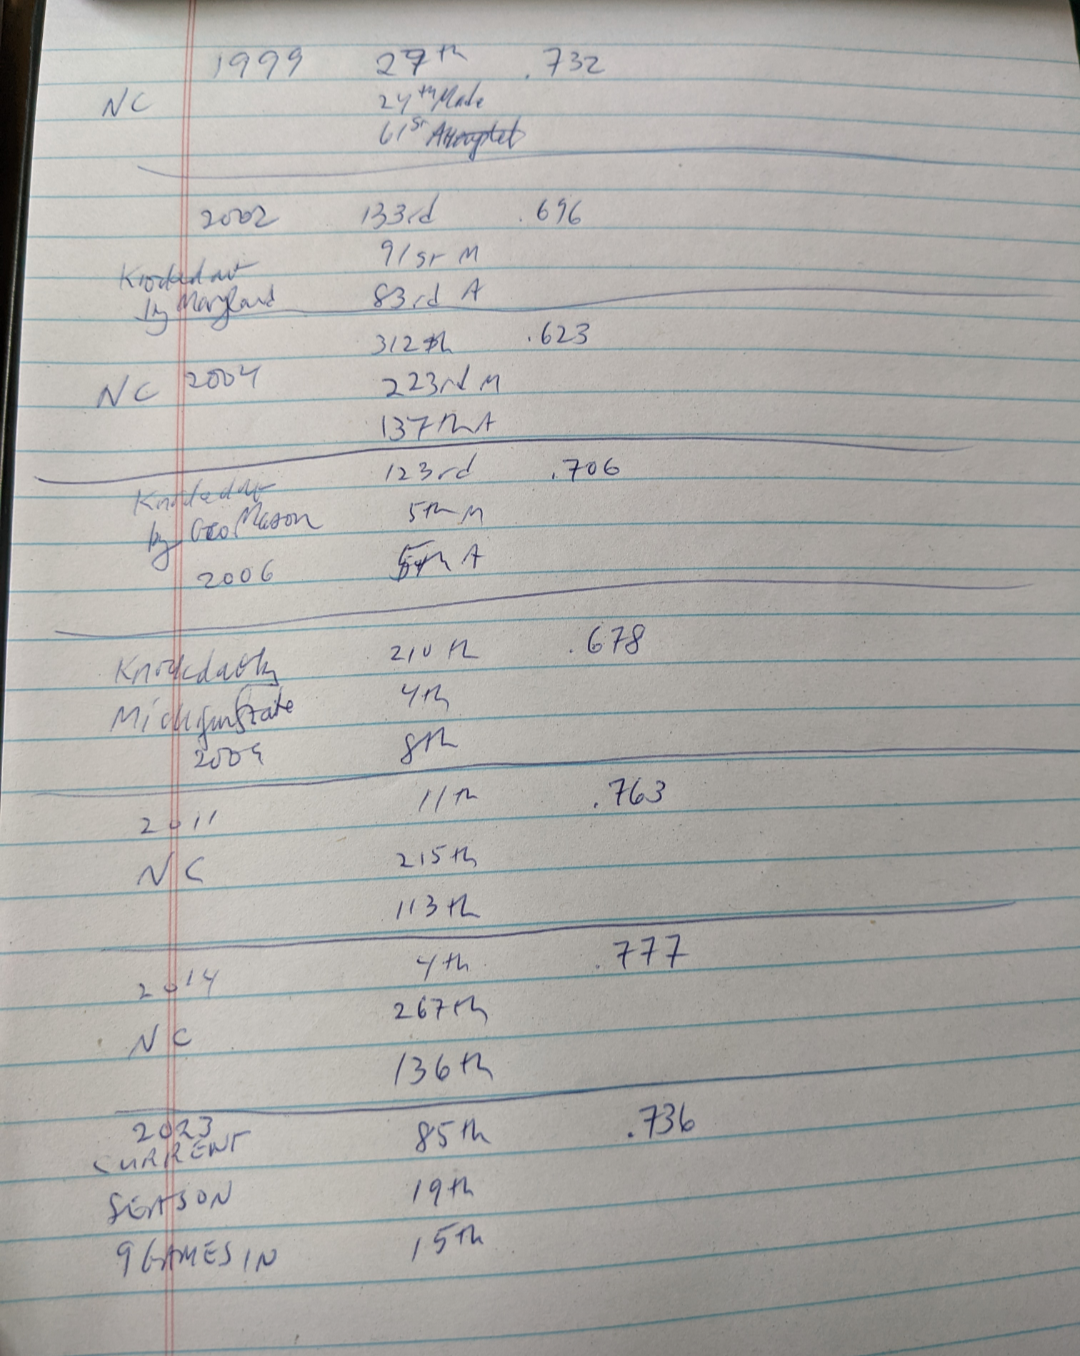 1999 27th .732
NC 24th Made
61st Attempted
2002 133rd .696
91st M
Knocked out
by Maryland 83rd A
312th .623
NC 2004 223rd M
137th A
123rd .706
Knocked out
by Geo Mason 5th M
2006 5th A
210th .678
Knocked out by
Michigan State 4th
2009 8th
2011 11th .763
NC 215th
113th
2014 4th .777
267th
NC
136th
2023 85th .736
CURRENT
SEASON 19th
9 GAMES IN 15th